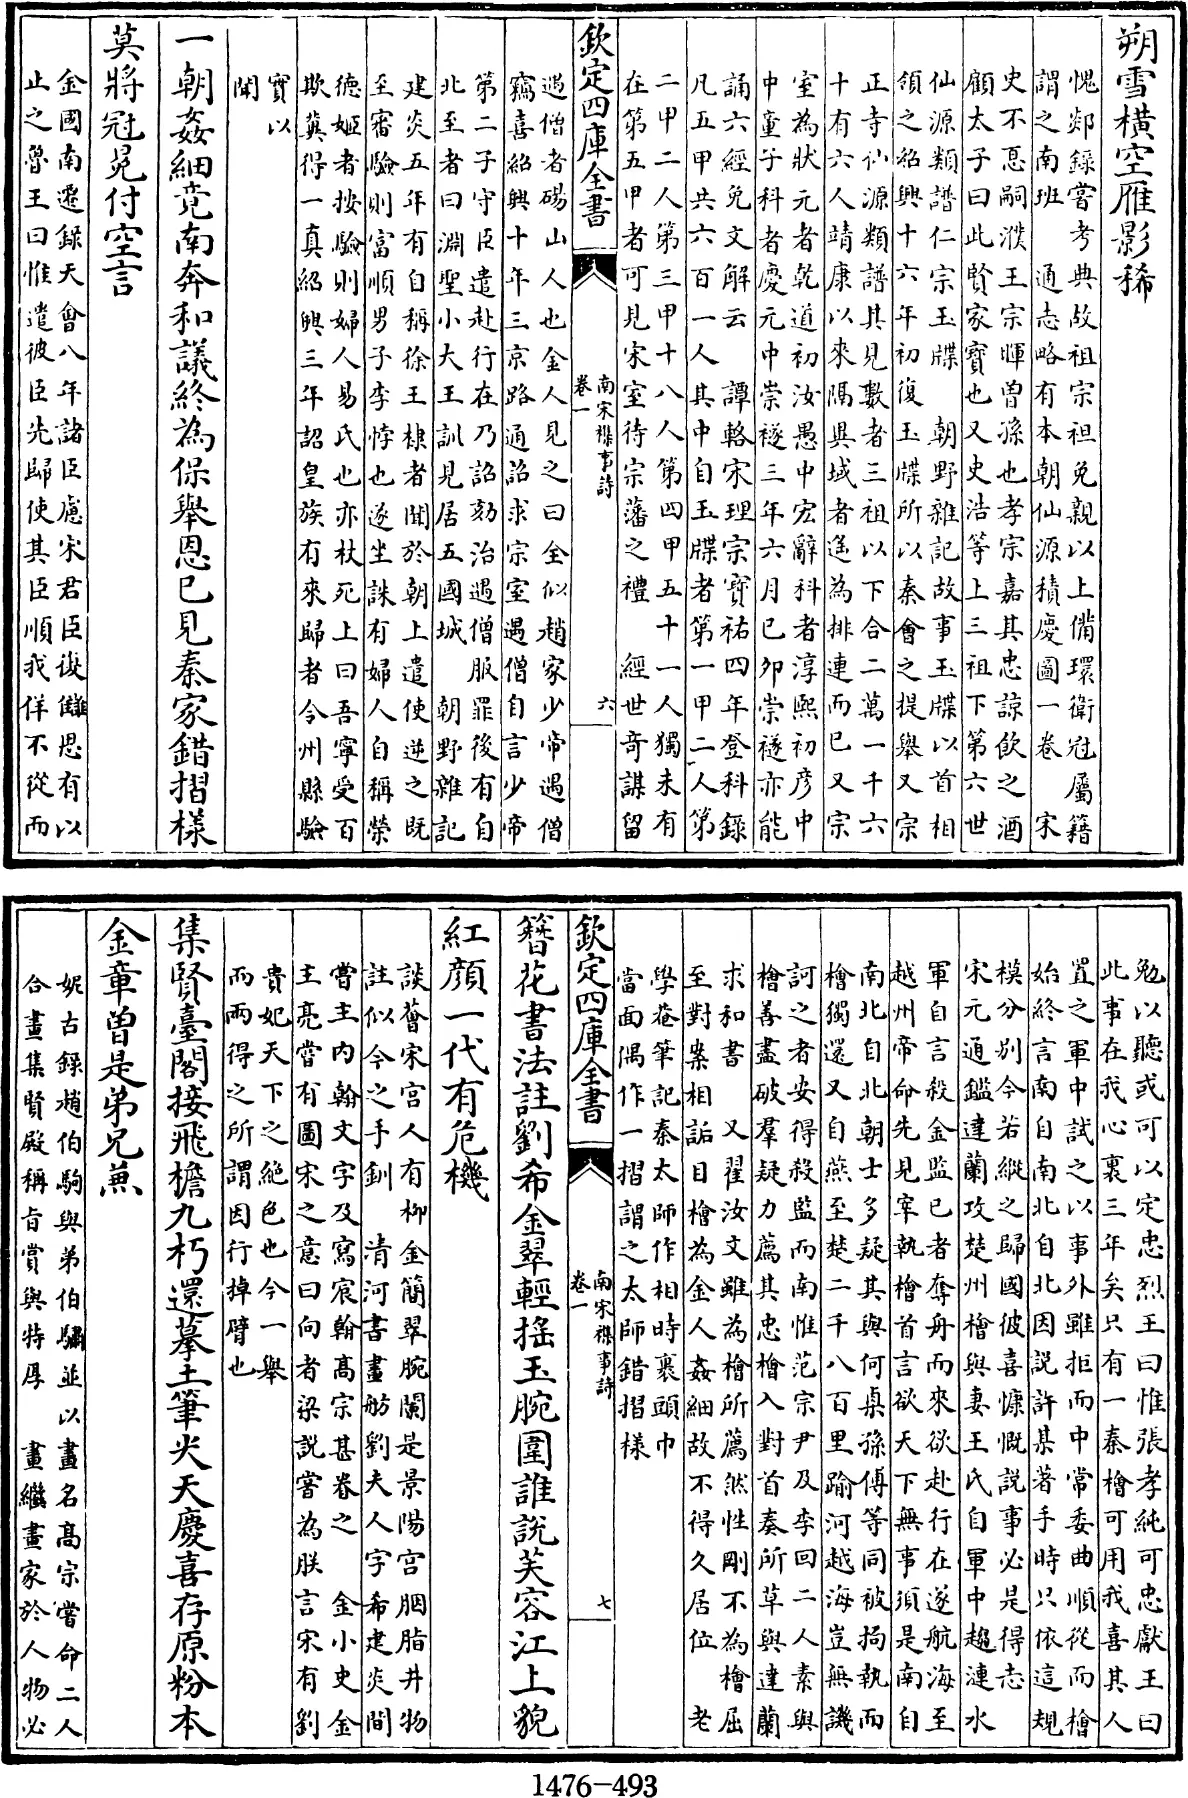 朔雪橫空雁影稀
愧郯錄嘗考典故祖宗袒免親以上備環衛冠屬籍
謂之南班　通志略有本朝仙源積慶圖一卷　宋
史不悳嗣濮王宗暉曾孫也孝宗嘉其忠諒飲之酒
顧太子曰此賢家寳也又史浩等上三祖下第六世
仙源類譜仁宗玉牒　朝野雜記故事玉牒以首相
領之紹興十六年初復玉牒所以秦會之提舉又宗
正寺仙源類譜其見數者三祖以下合二萬一千六
十有六人靖康以來隔異域者遥為排連而已又宗
室為狀元者乾道初汝愚中宏辭科者淳熙初彦中
中童子科者慶元中崇襚三年六月已夘崇襚亦能
誦六經免文解云　譚輅宋理宗寳祐四年登科錄
凡五甲共六百一人其中自玉牒者第一甲二人第
二甲二人第三甲十八人第四甲五十一人獨未有
在第五甲者可見宋室待宗藩之禮　經世奇謀留
欽定四庫全書
南宋襍事詩
卷一
六
遇僧者碭山人也金人見之曰全似趙家少帝遇僧
竊喜紹興十年三京路通詔求宗室遇僧自言少帝
第二子守臣遣赴行在乃詔劾治遇僧服罪後有自
北至者曰淵聖小大王訓見居五國城　朝野雜記
建炎五年有自稱徐王棣者聞於朝上遣使逆之既
至審驗則富順男子李悖也遂坐誅有婦人自稱榮
德姬者按驗則婦人易氏也亦杖死上曰吾寧受百
欺冀得一真紹興三年詔皇族有來歸者令州縣驗
實以
聞
一朝姦細竟南奔和議終為保舉恩已見秦家錯摺樣
莫將冠冕付空言
金國南遷錄天會八年諸臣慮宋君臣復讎思有以
止之魯王曰惟遣彼臣先歸使其臣順我佯不從而
勉以聽或可以定忠烈王曰惟張孝純可忠獻王曰
此事在我心裏三年矣只有一秦檜可用我喜其人
置之軍中試之以事外雖拒而中常委曲順從而檜
始終言南自南北自北因説許某著手時只依這規
模分别今若縱之歸國彼喜慷慨説事必是得志
宋元通鑑達蘭攻楚州檜與妻王氏自軍中趨漣水
軍自言殺金監已者奪舟而來欲赴行在遂航海至
越州帝命先見宰執檜首言欲天下無事須是南自
南北自北朝士多疑其與何㮚孫傅等同被拘執而
檜獨還又自燕至楚二千八百里踰河越海豈無譏
訶之者安得殺監而南惟范宗尹及李回二人素與
檜善盡破羣疑力薦其忠檜入對首奏所草與達蘭
求和書　又翟汝文雖為檜所薦然性剛不為檜屈
至對案相詬目檜為金人姦細故不得久居位　老
學菴筆記秦太師作相時裹頭巾
當面偶作一摺謂之太師錯摺樣
欽定四庫全書
南宋襍事詩
卷一
七
簪花書法註劉希金翠輕揺玉腕圍誰説芙容江上貌
紅顔一代有危機
談薈宋宫人有柳金簡翠腕闌是景陽宫胭脂井物
註似今之手釧　清河書畫舫劉夫人字希建炎間
嘗主内翰文字及寫宸翰髙宗甚眷之　金小史金
主亮嘗有圖宋之意曰向者梁説嘗為朕言宋有劉
貴妃天下之絶色也今一舉
而兩得之所謂因行掉臂也
集賢臺閣接飛檐九朽還摹土筆尖天慶喜存原粉本
金章曽是弟兄兼
妮古録趙伯駒與弟伯驌並以畫名髙宗嘗命二人
合畫集賢殿稱㫖賞與特厚　畫繼畫家於人物必
1476-493